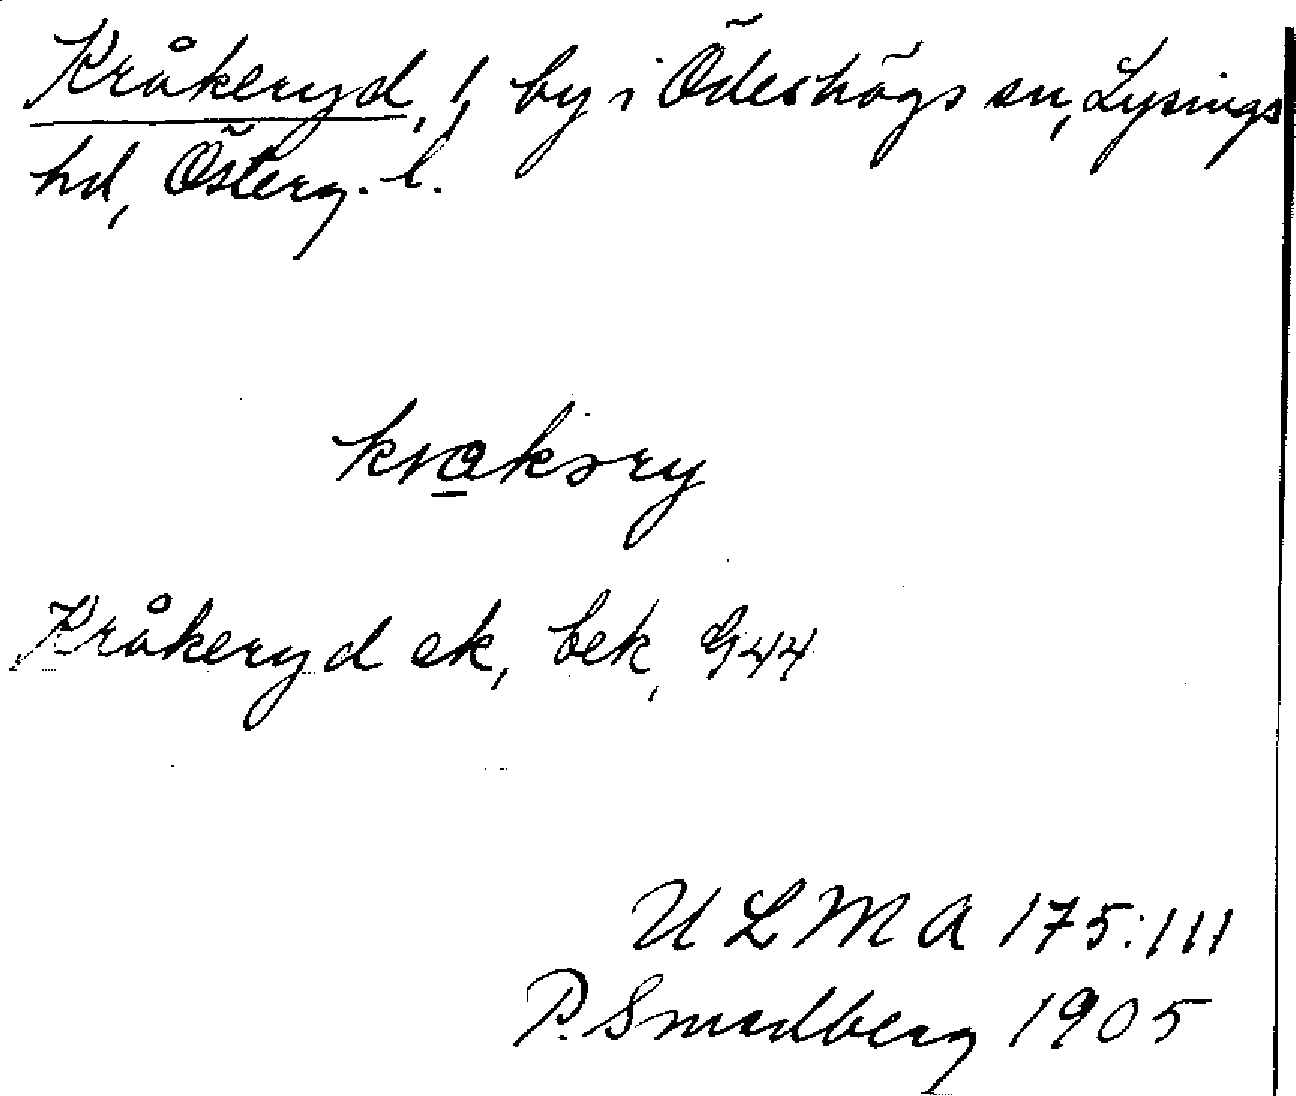 Kråkeryd, !, by i Ödeshögs sn, Lysings
hd, Österg. l.
kråkəry
Kråkeryd ek, bek, G44
ULMA 175:111
P. Smedberg 1905